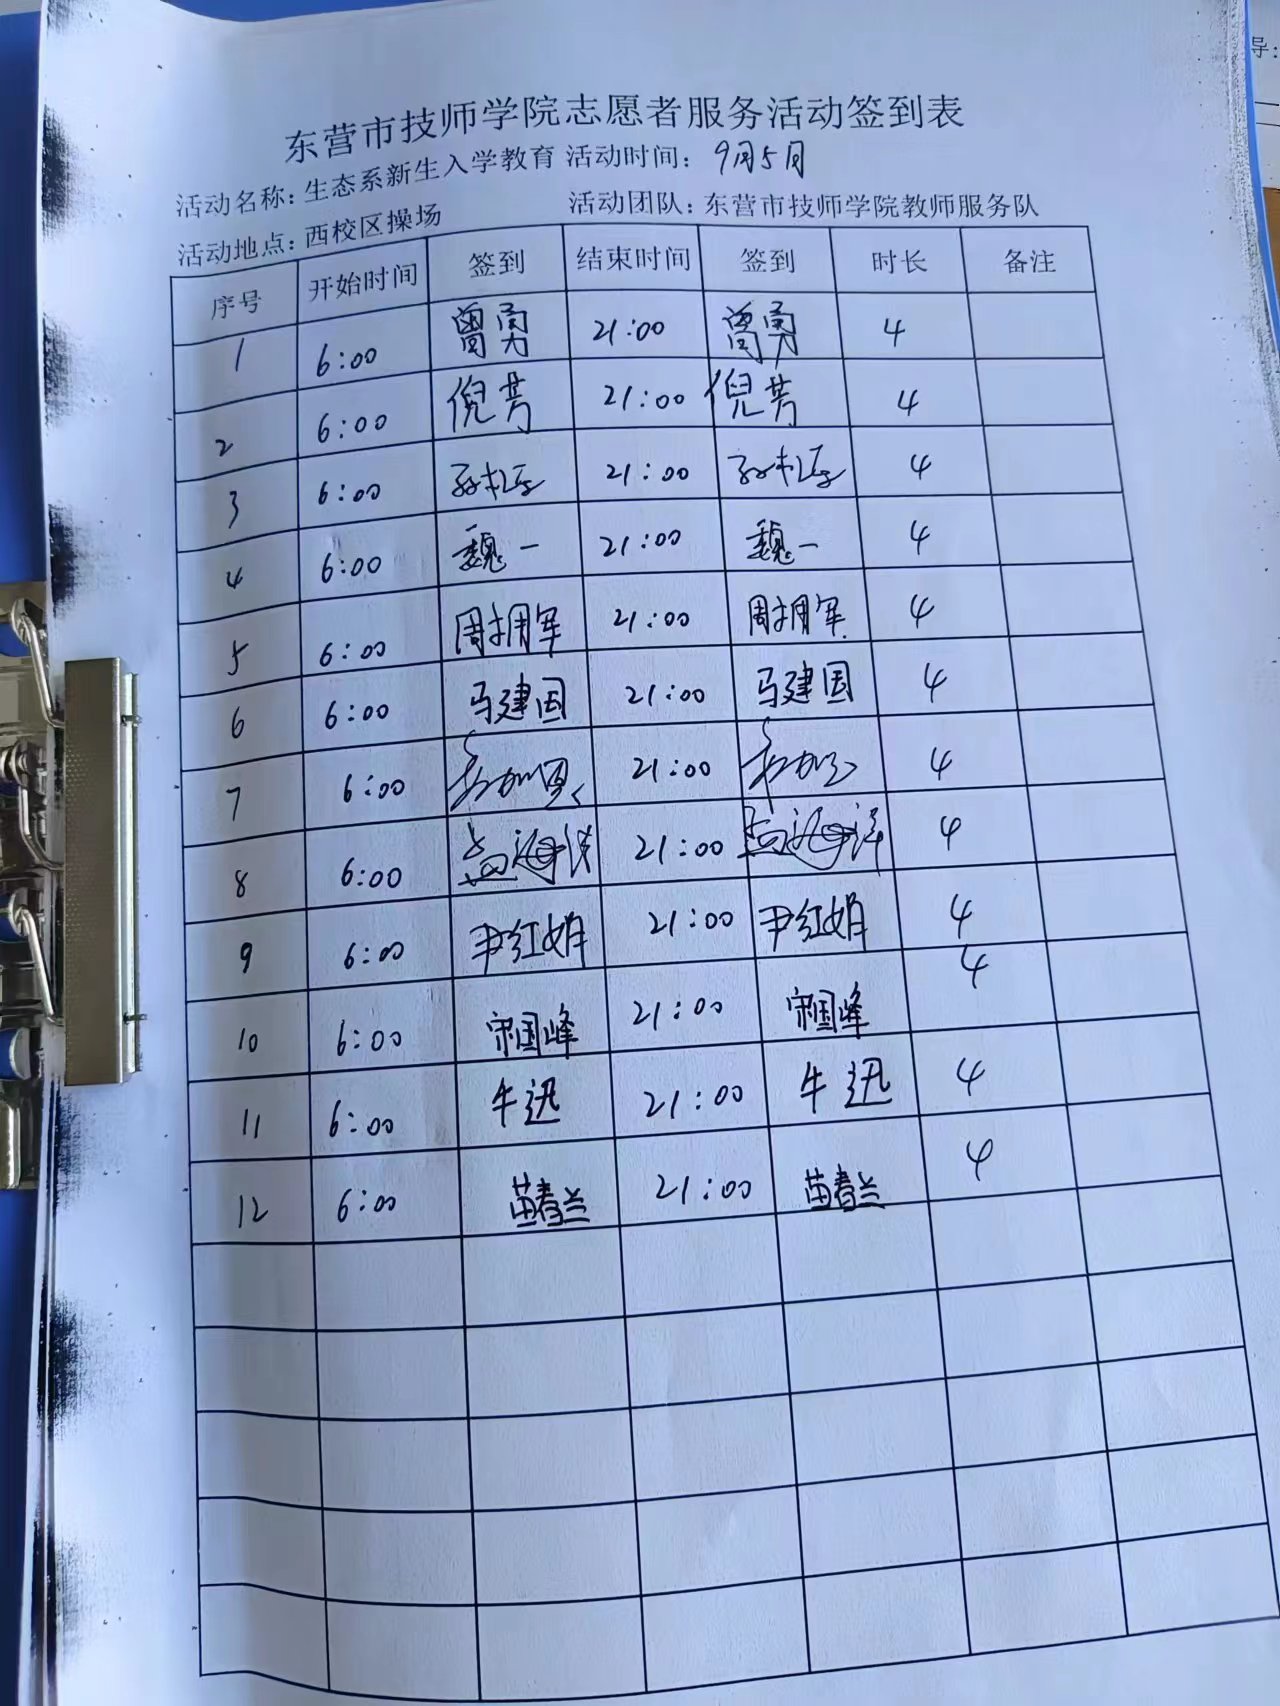 导:
东营市技师学院志愿者服务活动签到表
活动名称: 生态系新生入学教育 活动时间: 9月5日
活动地点: 西校区操场 活动团队: 东营市技师学院教师服务队
序号 开始时间 签到 结束时间 签到 时长 备注
1 6:00 曾勇 21:00 曾勇 4
2 6:00 倪芳 21:00 倪芳 4
3 6:00 21:00 4
4 6:00 魏一 21:00 魏一 4
5 6:00 周拥军 21:00 周拥军 4
6 6:00 马建国 21:00 马建国 4
7 6:00 21:00 4
8 6:00 高海洋 21:00 高海洋 4
9 6:00 尹红娟 21:00 尹红娟 4
10 6:00 宋国峰 21:00 宋国峰 4
11 6:00 牛迅 21:00 牛迅 4
12 6:00 苗春兰 21:00 苗春兰 4